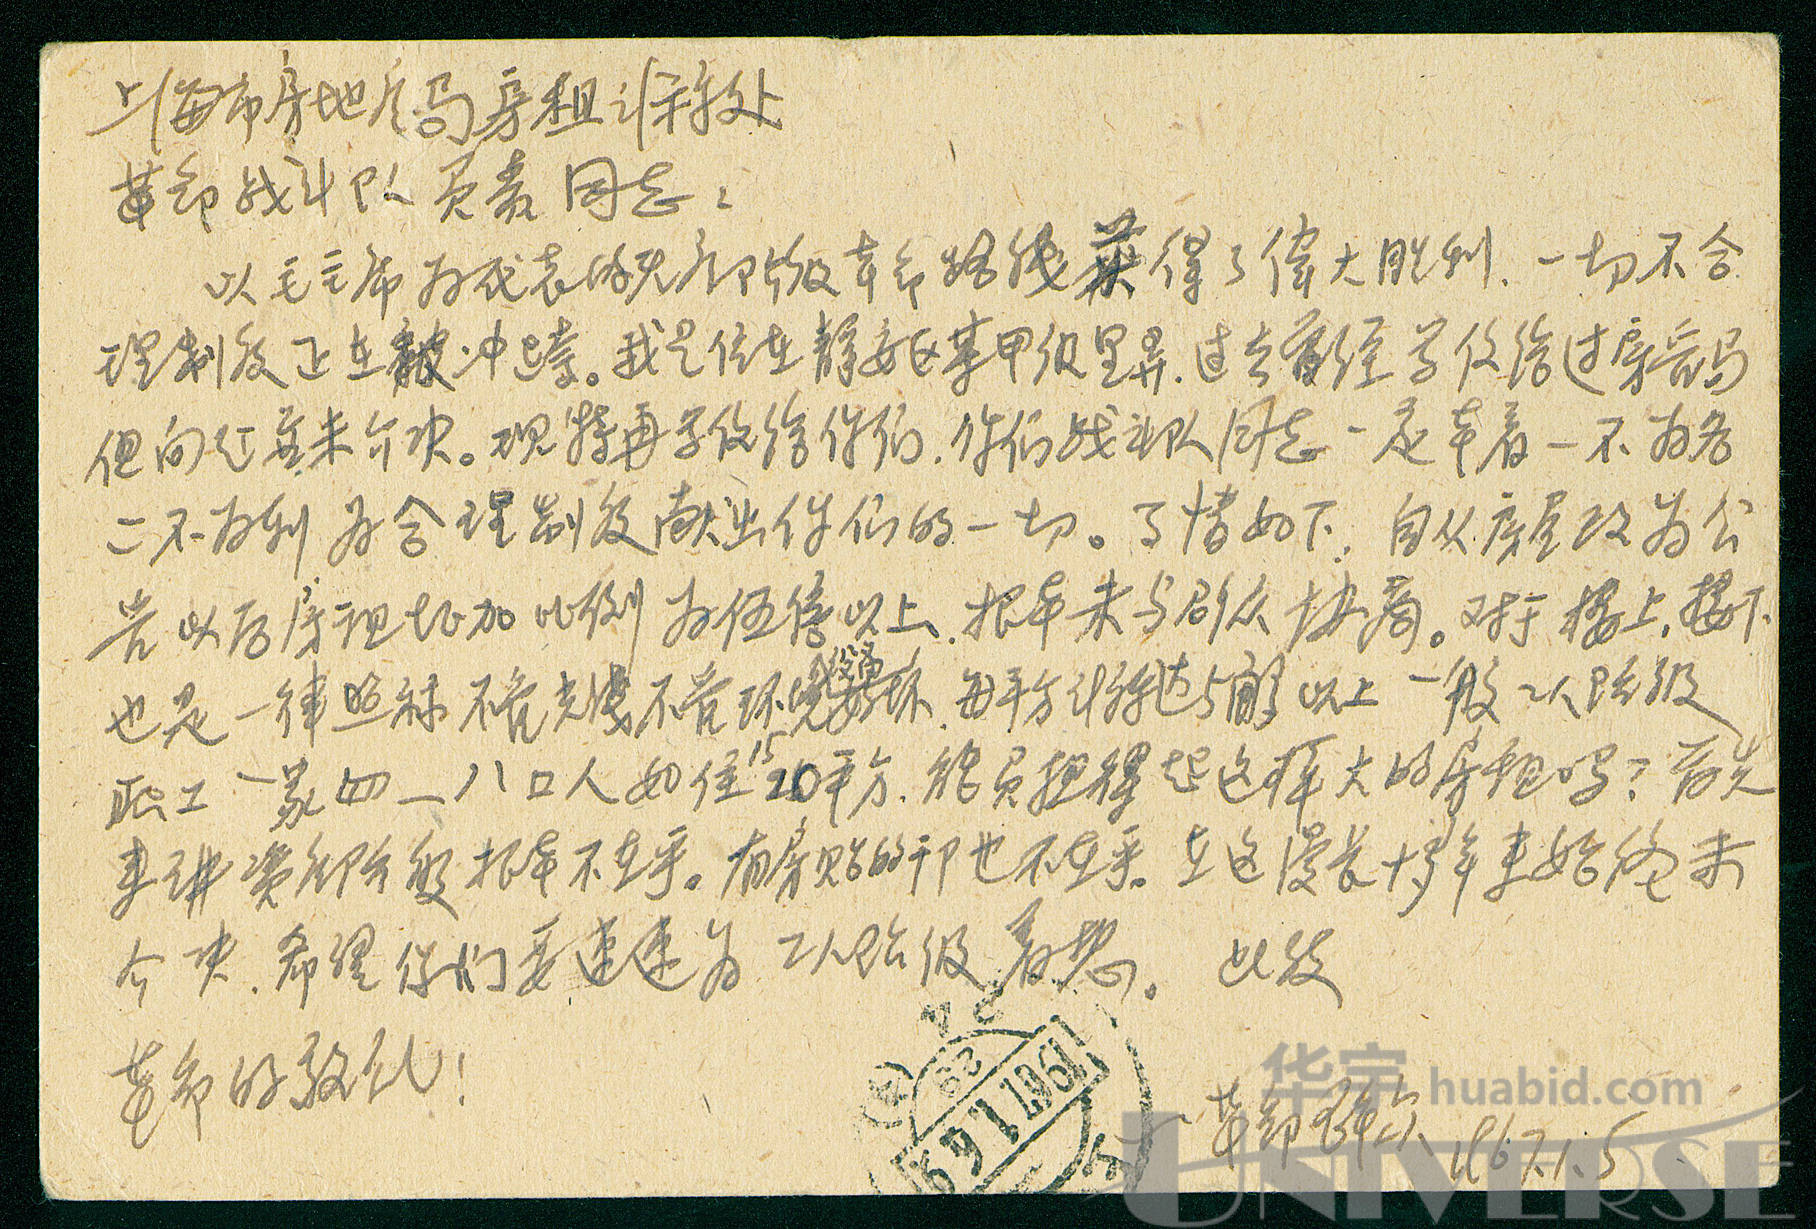 上海市房地产局房租计算处
革命战斗队负责同志：
以毛主席为代表的无产阶级革命路线获得了偉大胜利．一切不合
理制度正在被冲垮。我是住在静安区某甲级里弄．过去曾经写信给过房管局
但问题并未介决。现特再写信给你们．你们战斗队同志一定本着一不为名
二不为利为合理制度献出你们的一切。事情如下：自从房屋改为公
管以后房租增加比例为伍倍以上．根本未与群众协商。对于楼上．楼下
也是一律照 不管光线不管环境好坏．每平方计算达5角以上 一般工人阶级
职工一家四—八口人如住15 20平方．能负担得起这样大的房租吗？首先
来讲资产阶级根本不在乎。有房贴的干部也不在乎。在这漫长十多年来始终未
介决．希望你们要速速为工人阶级着想。 此致
革命的敬礼！
革命群众 1967.1.5
1967.1.6
华宇 huabid.com
UNIVERSE